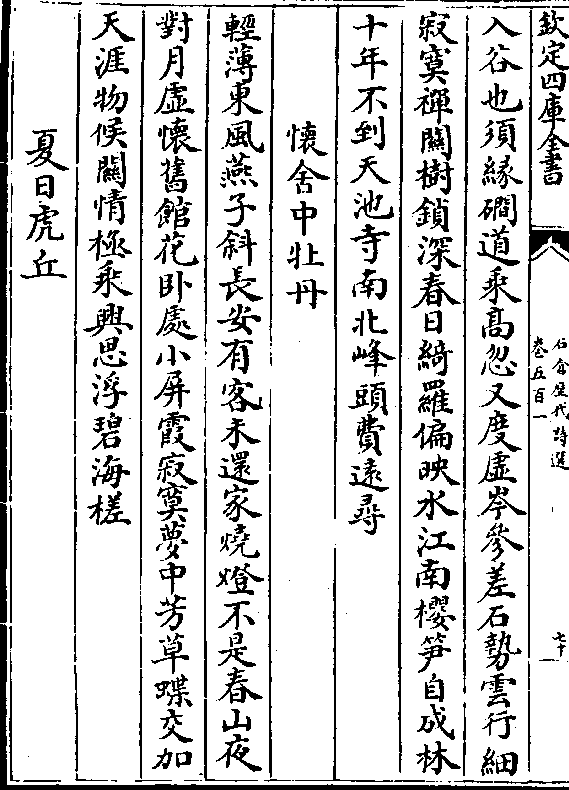 欽定四庫全書
石倉歷代詩選
卷五百一
七十一
入谷也須緣磵道乘高忽又度虛岑參差石勢雲行細
寂寞禪關樹鎖深春日綺羅偏映水江南櫻笋自成林
十年不到天池寺南北峰頭費遠尋
懷舍中牡丹
輕薄東風燕子斜長安有客未還家燒燈不是春山夜
對月虛懷舊館花卧處小屏霞寂寞夢中芳草蝶交加
天涯物候關情極乘興思浮碧海槎
夏日虎丘